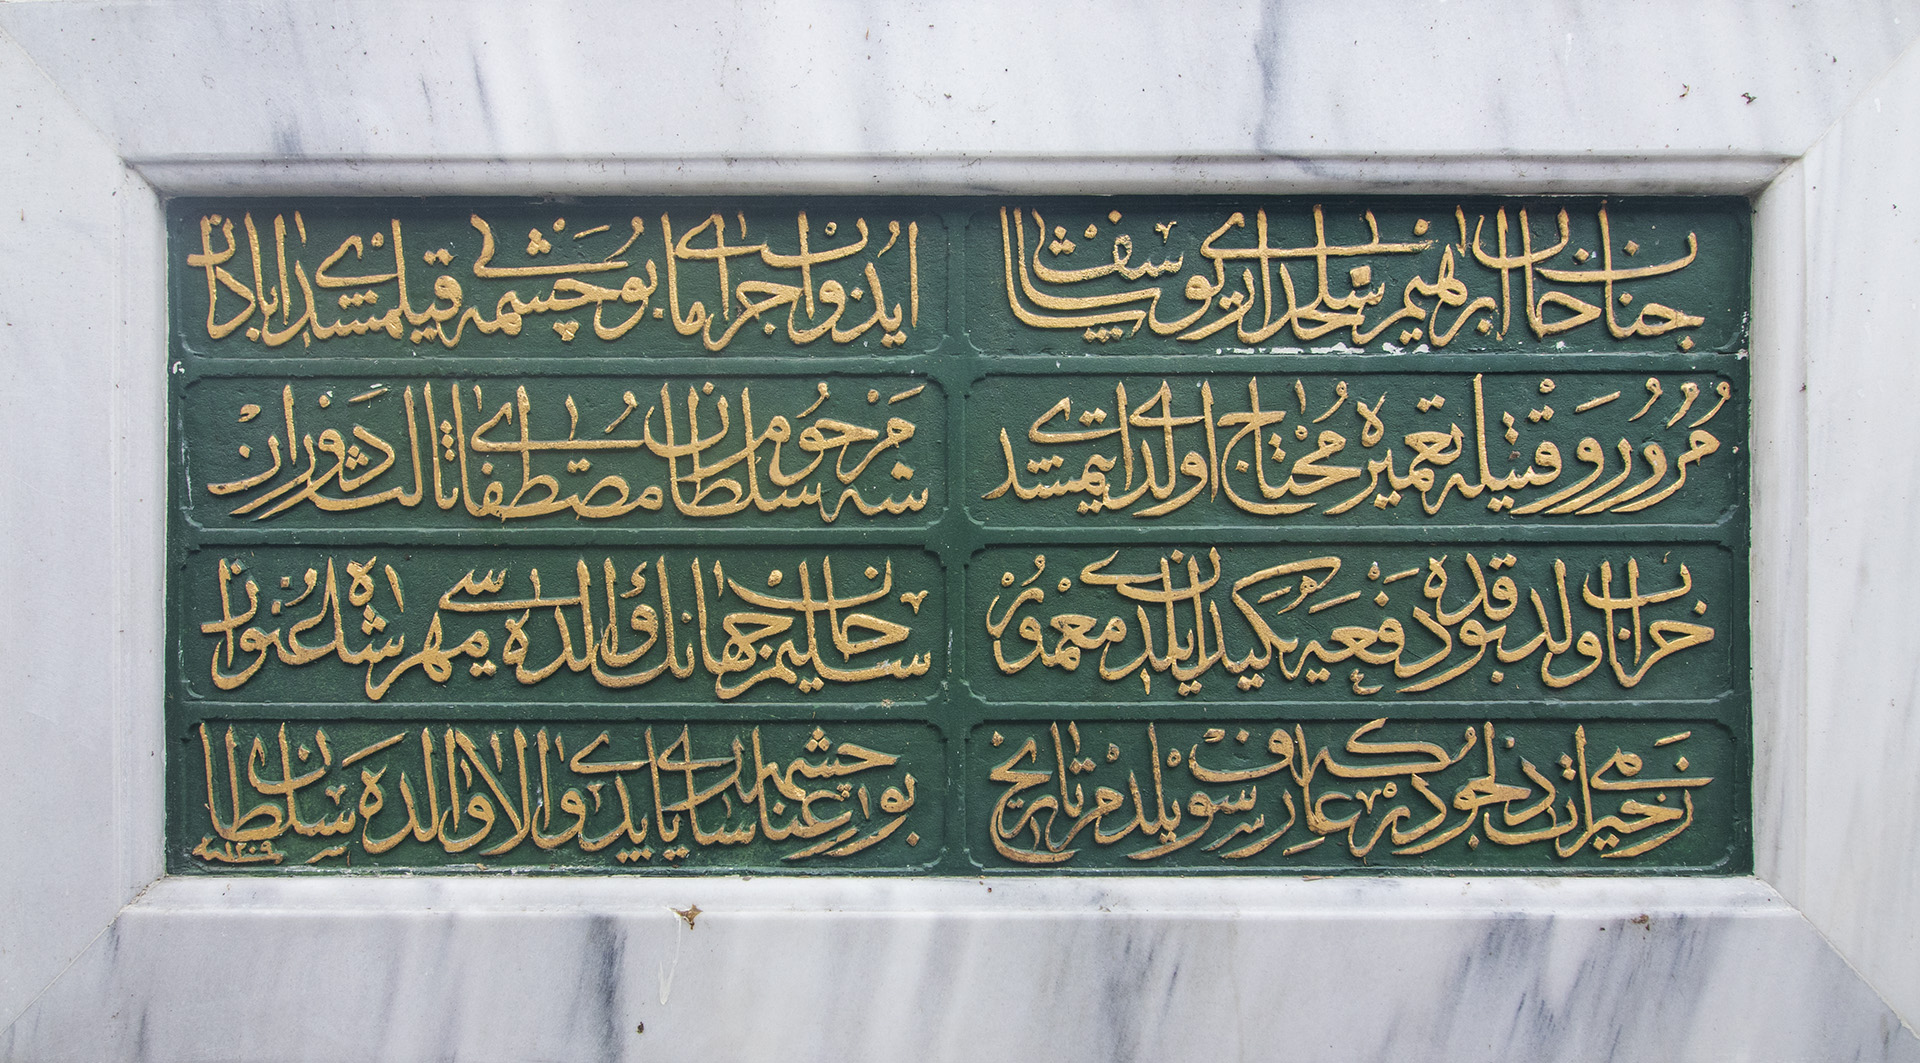 جناب خان ابرهیم سلحداری یوسف پاشا
ایدوب اجرای ما بو چشمه یی قیلمشدی ابادان
مرور وقتیله تعمیره محتاج اولدی ایتمشدی
شه مرحوم سلطان مصطفای ثالث دوران
خراب اولدقده بو دفعه یکیدن ایلدی معمور
سلیم خان جهانك والده سی مهرشاه عنوان
خیرات دلجودر که عارف سویلدم تاریخ
بو رعنا چشمه ساری یاپدی والا والده سلطان
سنه ١٢٠٩